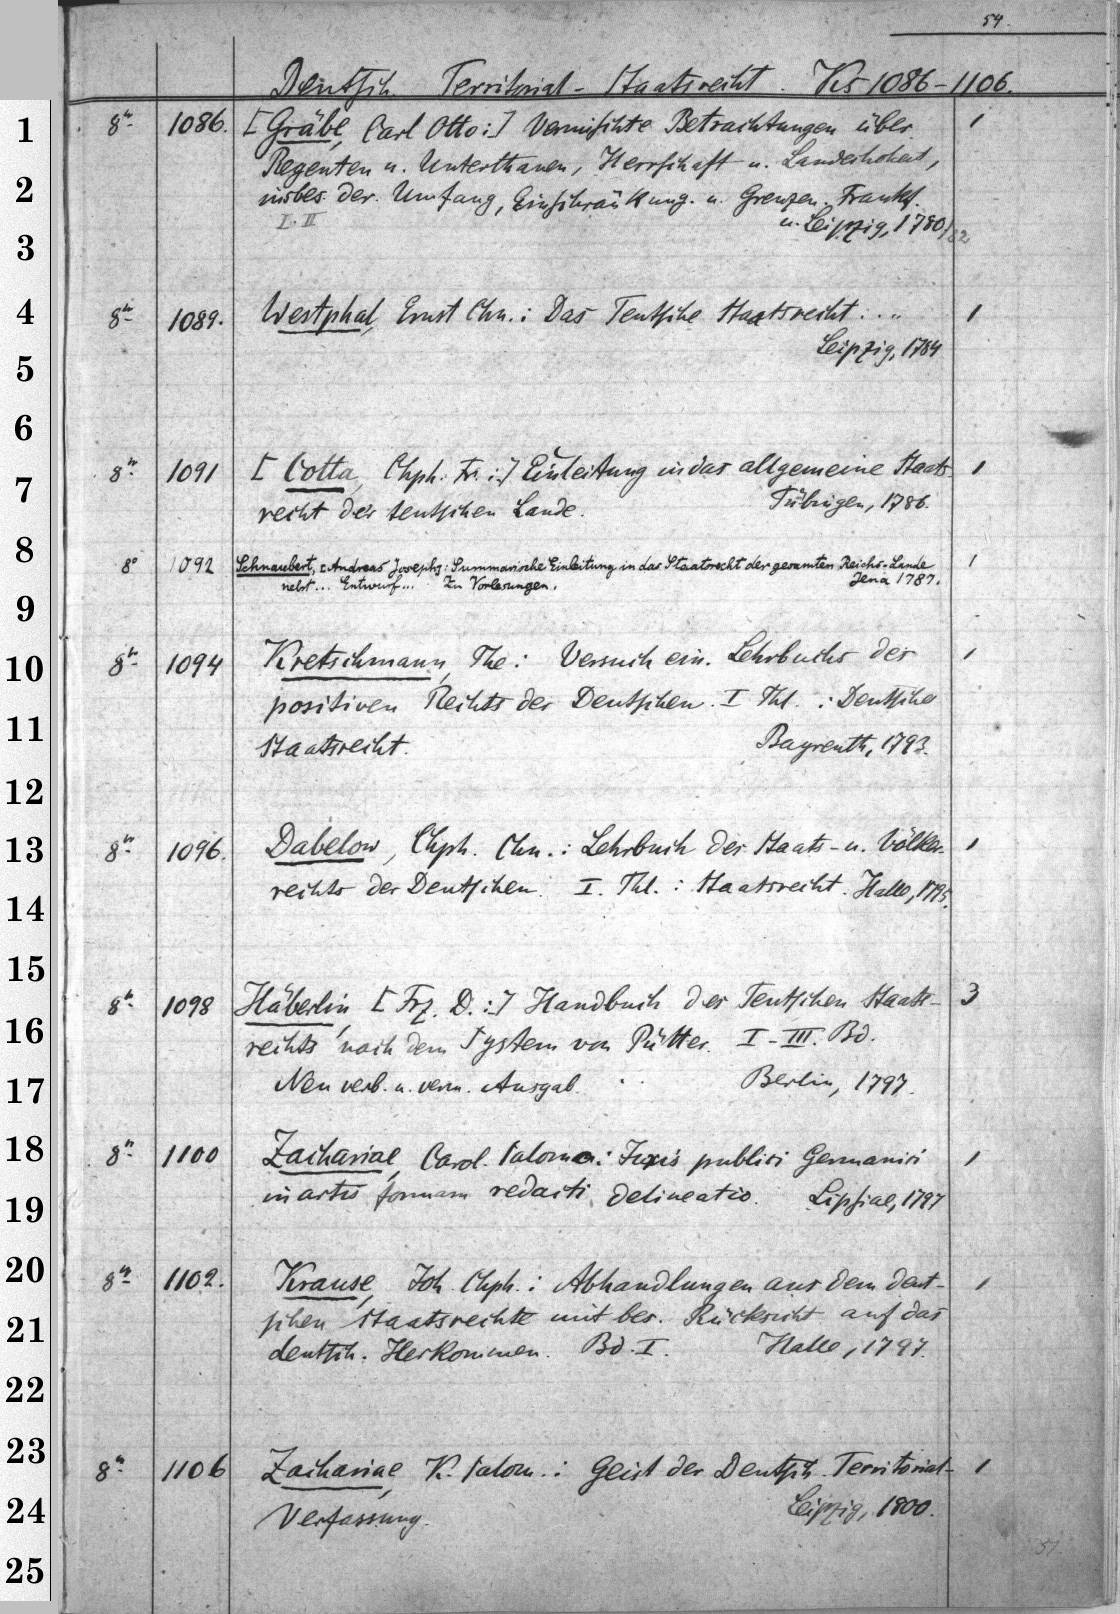 54.
Deutsch. Territorial-Staatsrecht. Ks 1086-1106.
1 8° 1086. [Gräbe, Carl Otto:] Vermischte Betrachtungen über 1
2 Regenten u. Unterthanen, Herrschaft u. Landeshoheit,
insbes. der. Umfang, Einschränkung. u. Grenzen. Frankf.
3 I. II u. Leipzig, 1780/82
4 8° 1089. Westphal, Ernst Chn.: Das Teutsche Staatsrecht... 1
5 Leipzig, 1784
6
7 8° 1091 [Cotta, Chph. Fr.:] Einleitung in das allgemeine Staats- 1
recht der teutschen Lande. Tübingen, 1786.
8 8° 1092 Schnaubert, [Andreas Joseph]: Summarische Einleitung in das Staatsrecht der gesamten Reichs-Lande 1
nebst... Entwurf... Zu Vorlesungen. Jena 1787.
9
10 8° 1094 Kretschmann, The: Versuch ein. Lehrbuchs des 1
positiven Rechts der Deutschen. I Thl.: Deutsche
11 Staatsrecht. Bayreuth, 1793.
12
13 8° 1096. Dabelow, Chph. Chn.: Lehrbuch des Staats- u. Völker- 1
14 rechts der Deutschen. I. Thl.: Staatsrecht. Halle, 1795.
15
8° 1098 Häberlin [Frz. D.:] Handbuch des Teutschen Staats- 3
16 rechts nach dem System von Pütter. I-III. Bd.
17 Neu verb. u. verm. Ausgab. Berlin, 1797.
18 8° 1100 Zachariae, Carol. Salomo: Juris publici Germanici 1
19 in artis formam redacti delineatio. Lipsiae, 1797
20 8° 1102. Krause, Joh Chph.: Abhandlungen aus dem deut- 1
21 schen Staatsrechte mit bes. Rücksicht auf das
deutsch. Herkommen. Bd. I. Halle, 1797.
22
23 8° 1106 Zachariae, K. Salom.: Geist der Deutsch. Territorial- 1
24 Verfassung. Leipzig, 1800.
25 51.